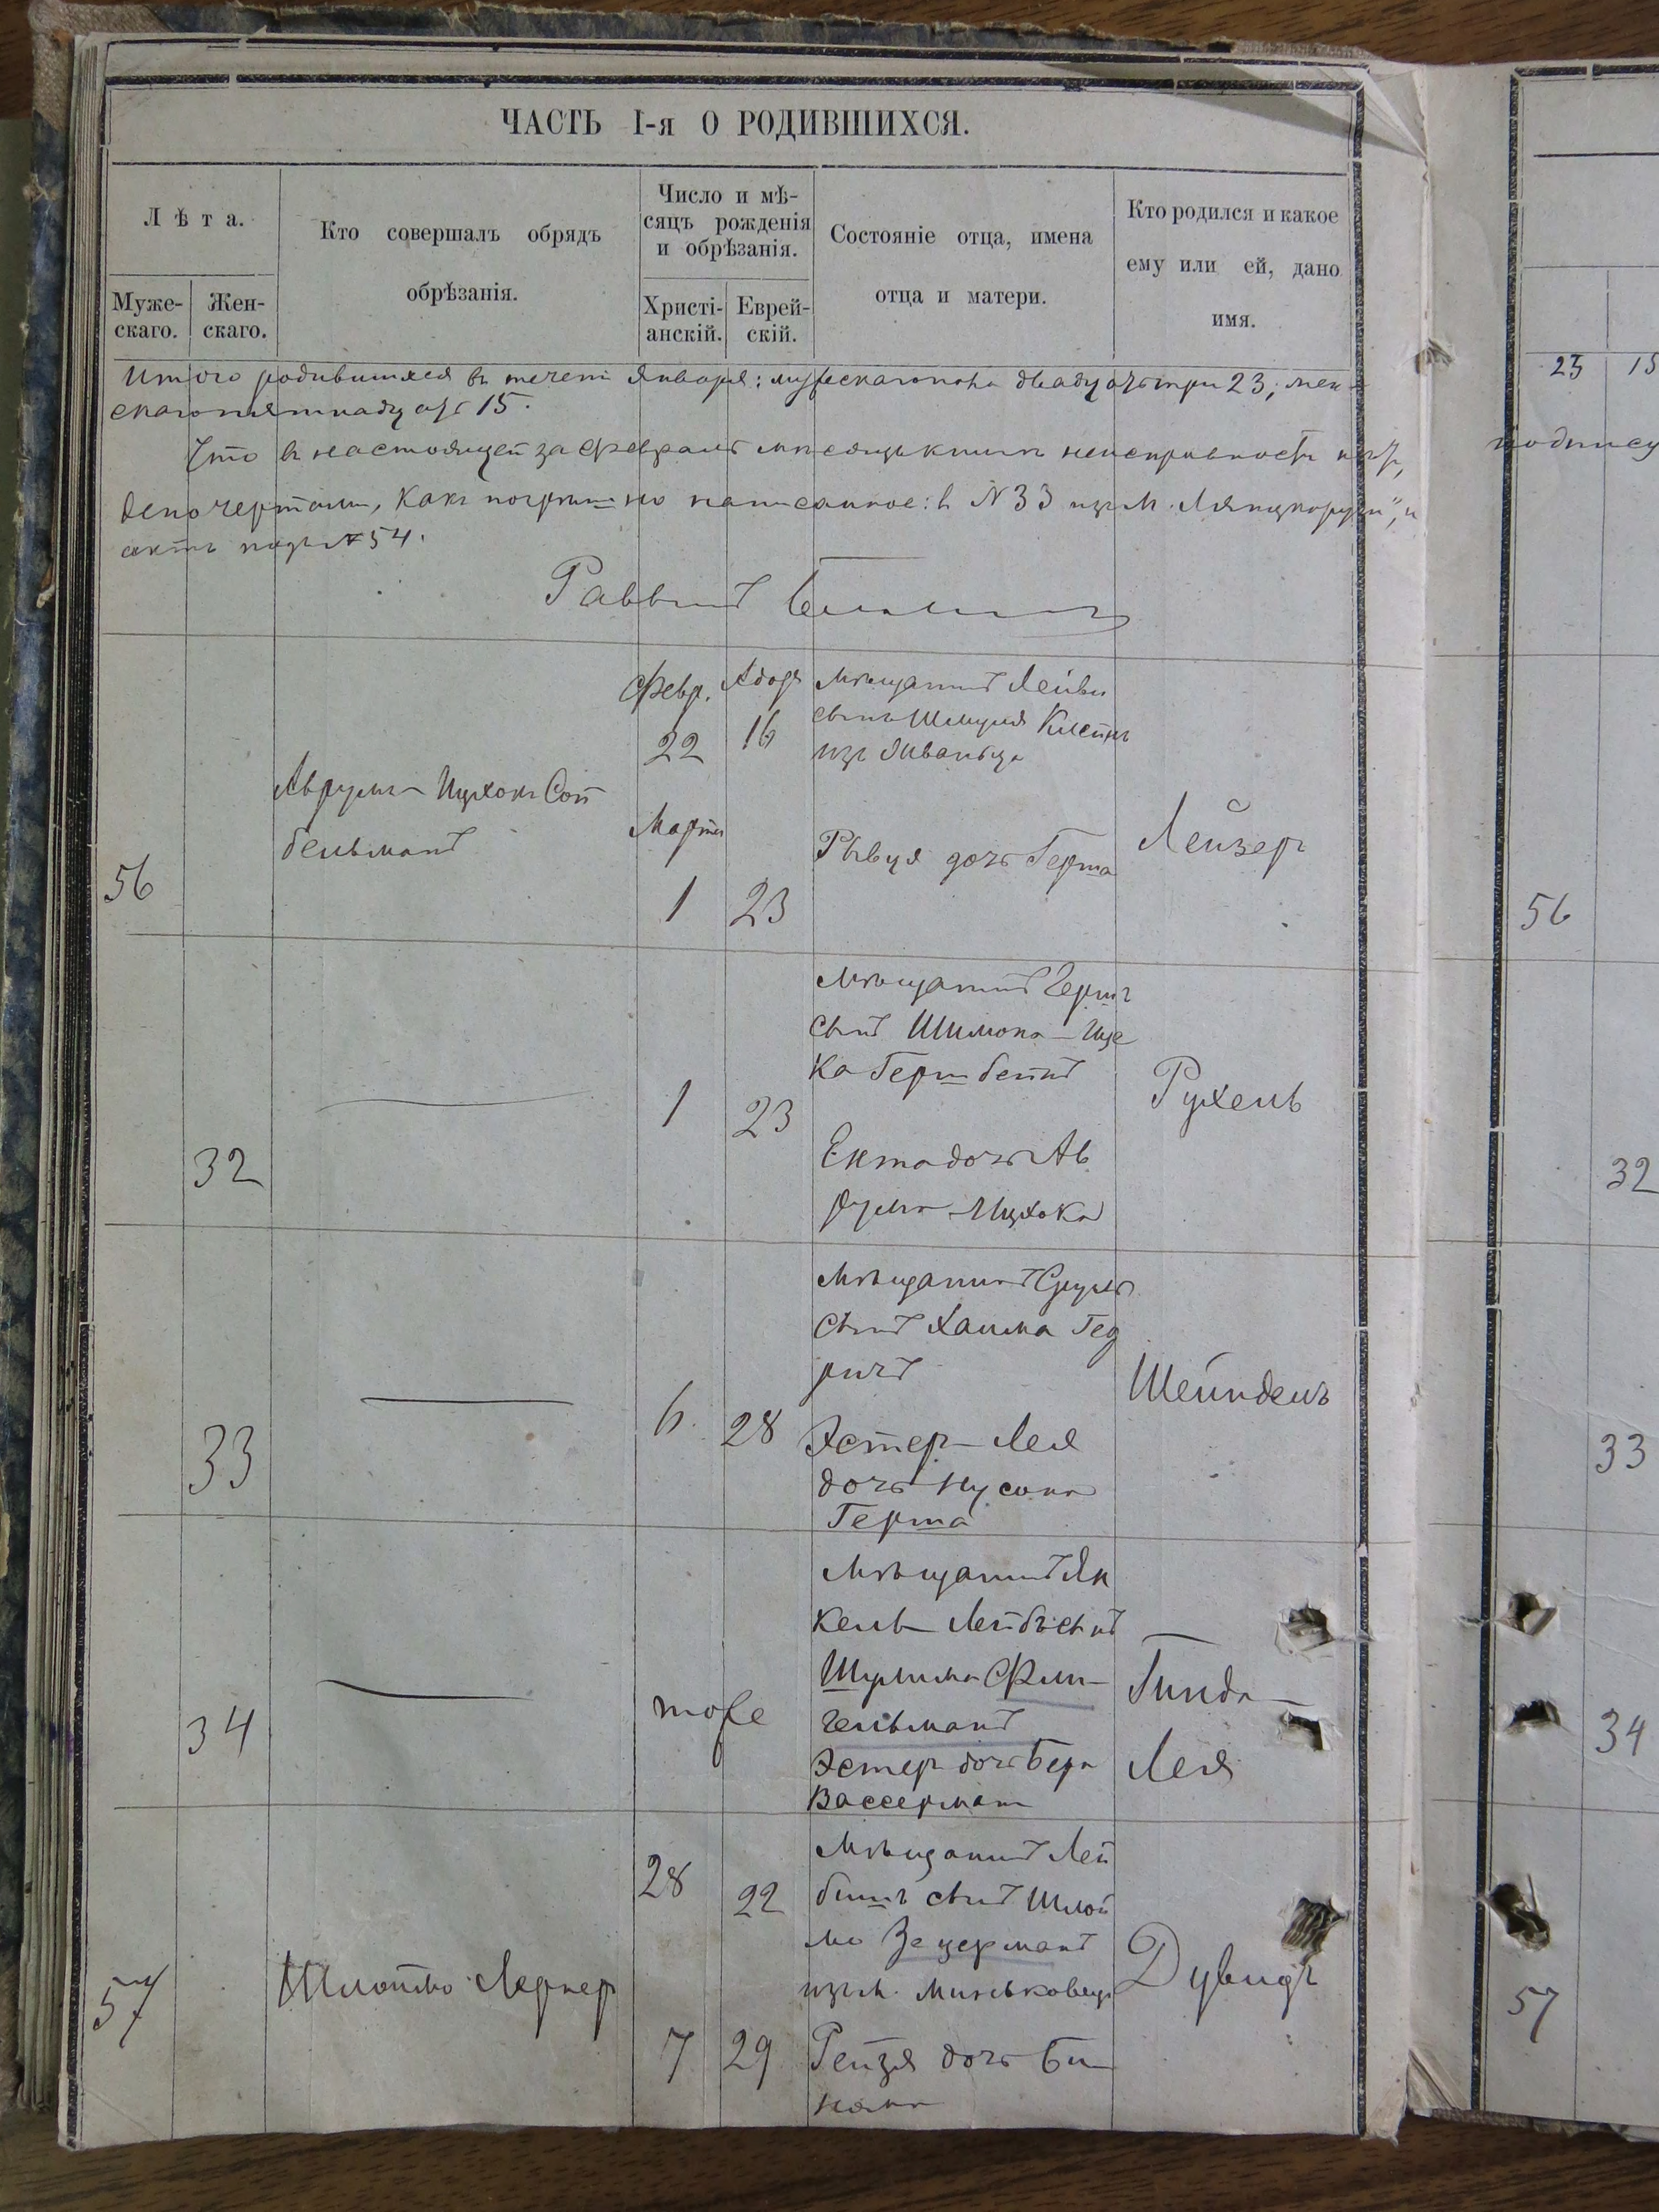 ЧАСТЬ I-я О РОДИВШИХСЯ.
Лѣта.
Муже-
скаго.
Жен-
скаго.
Кто совершалъ обрядъ
обрѣзанія.
Число и мѣ-
сяцъ рожденія
и обрѣзанія.
Христі-
анскій.
Еврей-
скій.
Состояніе отца, имена
отца и матери.
Кто родился и какое
ему или ей, дано
имя.
Итого родившихся въ течени Января: мужескаго пола двадцать три 23, жен-
скаго пятнадцать 15.
Что в настоящей за Февраль мѣсяцъ книгѣ
какъ погрѣшно написанное: в N 33 изъ м.
актъ подъ N 54.
Раввинъ
56
Аврумъ-Ицхокъ Сой
бельманъ
Февр.
22
Адаръ
16
Марта
1
23
Мѣщанинъ Лейви
сынъ Шмуля
изъ Жванца
Рывця дочь Герша
Лейзеръ
32
1
23
Мѣщанинъ Гершъ
сынъ Шимона-Ице
ка Гершбейнъ
Ента дочь Ав
рума-Ицхока
Рухель
33
6
28
Мѣщанинъ Сруль
сынъ Хаима Гед
ричъ
Эстер-Лея
дочь Нусона
Герша
Шейндель
34
тоже
Мѣщанинъ Ян
кель-Лейбъ сынъ
Шулима Фин-
гельманъ
Эстер дочь Бера
Вассерман
Гинда-
Лея
57
Шлоймо Лернер
28
22
7
29
Мѣщанинъ Лей
бишъ сынъ Шлой
мо Зецерманъ
изъ м. Миньковецъ
Рейзя дочь Би
нома
Дувидъ
23
15
подпису
56
32
33
34
57